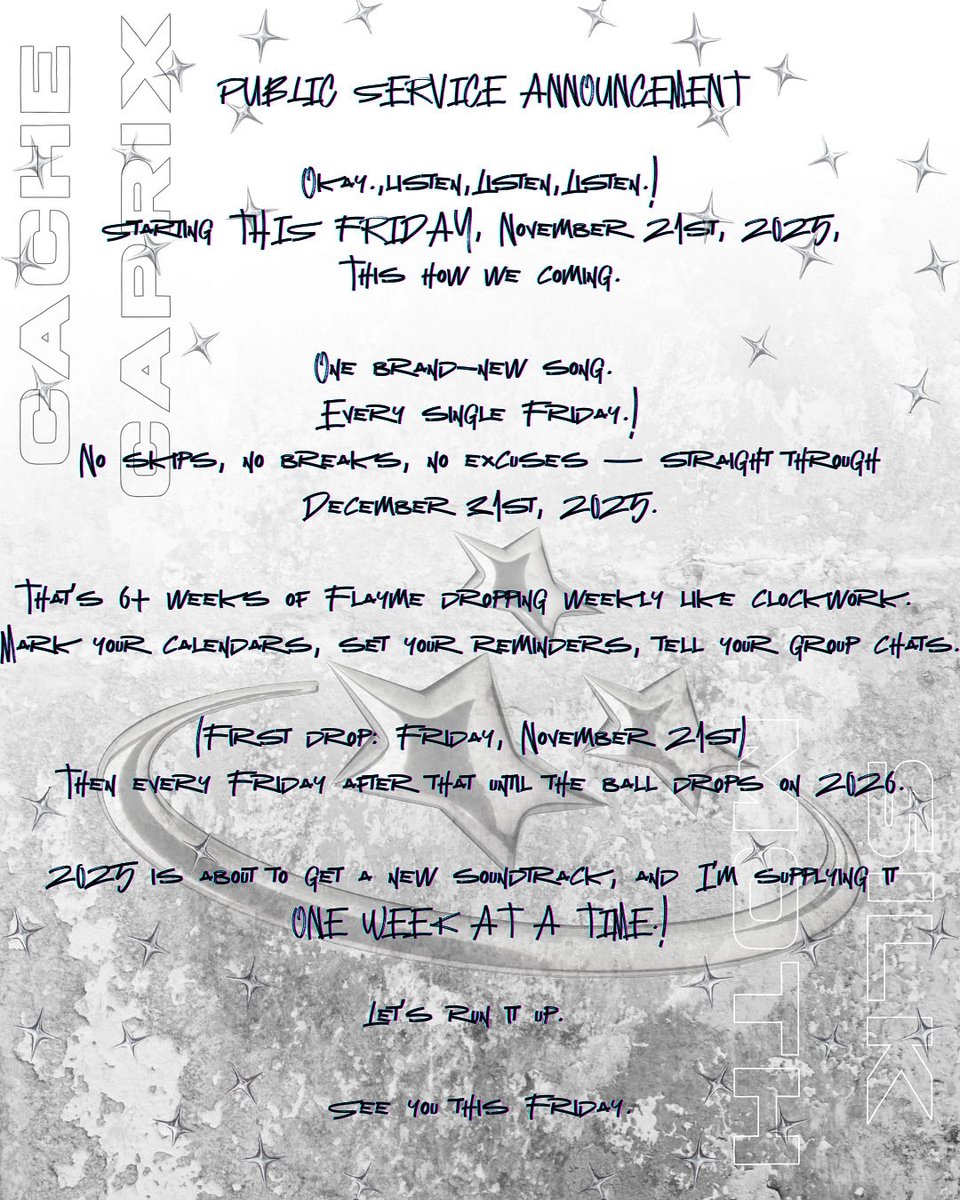 CACHE
CAPRIX
PUBLIC SERVICE ANNOUNCEMENT
Okay.,listen,Listen,Listen.!
starting THIS FRIDAY, November 21st, 2025,
This how we coming.
One brand-new song.
Every single Friday.!
No skips, no breaks, no excuses — straight through
December 31st, 2025.
That's 6+ weeks of Flayme dropping weekly like clockwork.
Mark your calendars, set your reminders, tell your group chats.
(First drop: Friday, November 21st)
Then every Friday after that until the ball drops on 2026.
2025 is about to get a new soundtrack, and I'm supplying it
ONE WEEK AT A TIME.!
Let's run it up.
See you this Friday.
SILK
MOTH